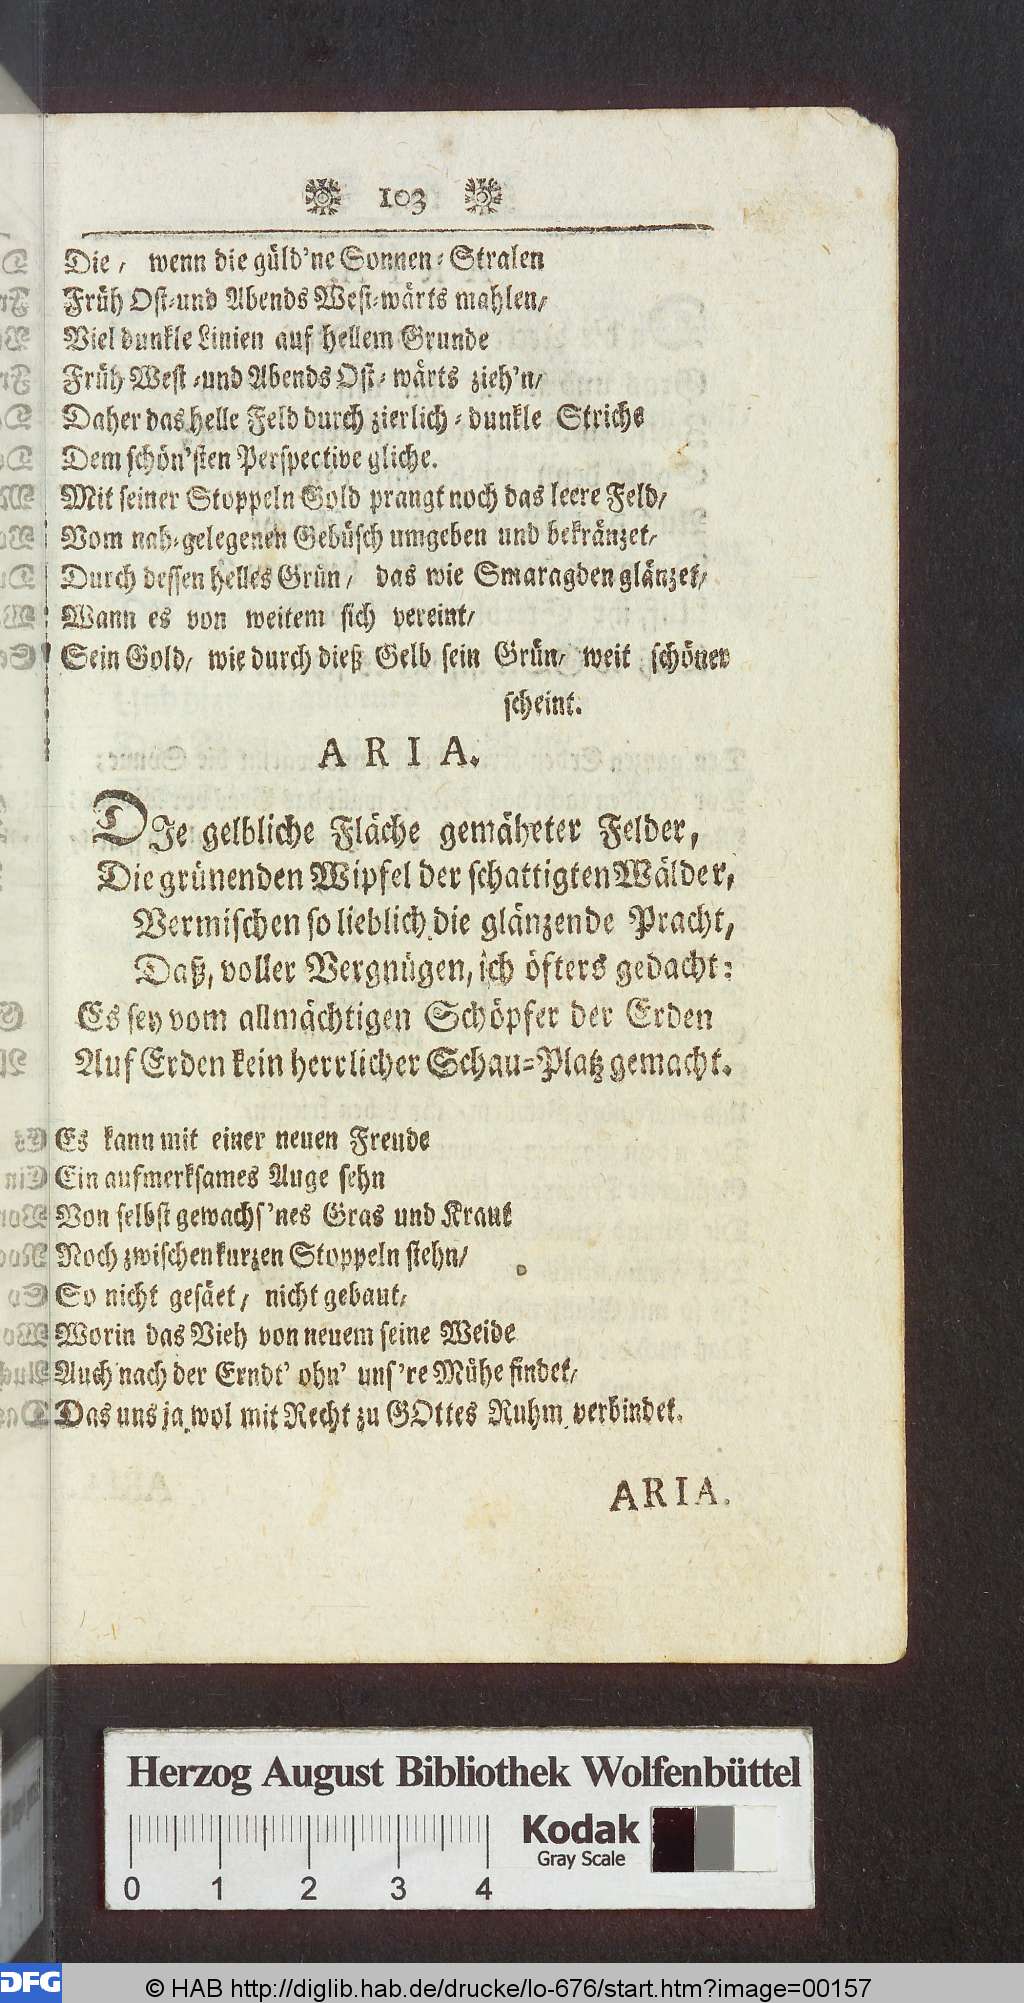 103
Die, wenn die güld'ne Sonnen-Stralen
Früh Ost-und Abends West-wärts mahlen/
Viel dunkle Linien auf hellem Grunde
Früh West-und Abends Ost-wärts zieh'n/
Daher das helle Feld durch zierlich-dunkle Striche
Dem schön'sten Perspective gliche.
Mit seiner Stoppeln Gold prangt noch das leere Feld/
Vom nah-gelegenen Gebüsch umgeben und bekränzet/
Durch dessen helles Grün/ das wie Smaragden glänzet/
Wann es von weitem sich vereint/
Sein Gold/ wie durch dieß Gelb sein Grün/ weit schöner
scheint.
ARIA.
DIe gelbliche Fläche gemäheter Felder,
Die grünenden Wipfel der schattigten Wälder,
Vermischen so lieblich die glänzende Pracht,
Daß, voller Vergnügen, ich öfters gedacht:
Es sey vom allmächtigen Schöpfer der Erden
Auf Erden kein herrlicher Schau-Platz gemacht.
Es kann mit einer neuen Freude
Ein aufmerksames Auge sehn
Von selbst gewachs'nes Gras und Kraut
Noch zwischen kurzen Stoppeln stehn/
So nicht gesäet/ nicht gebaut/
Worin das Vieh von neuem seine Weide
Auch nach der Erndt' ohn' uns're Mühe findet/
Das uns ja wol mit Recht zu GOttes Ruhm verbindet.
ARIA.
Herzog August Bibliothek Wolfenbüttel
Kodak
Gray Scale
0 1 2 3 4
DFG
© HAB http://diglib.hab.de/drucke/lo-676/start.htm?image=00157